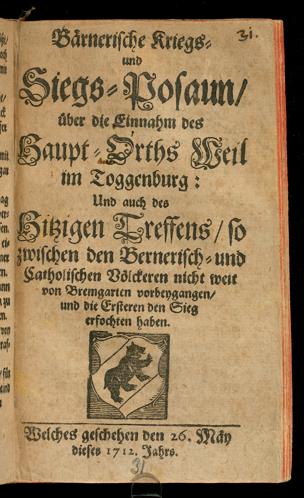 31.
Bärnerische Kriegs-
und
Siegs-Posaun/
über die Einnahm des
Haupt-Orths Weil
im Toggenburg:
Und auch des
Hitzigen Treffens/ so
zwischen den Bernerisch- und
Catholischen Völckeren nicht weit
von Bremgarten vorbeygangen/
und die Ersteren den Sieg
erfochten haben.
Welches geschehen den 26. Mäy
dieses 1712. Jahrs.
31